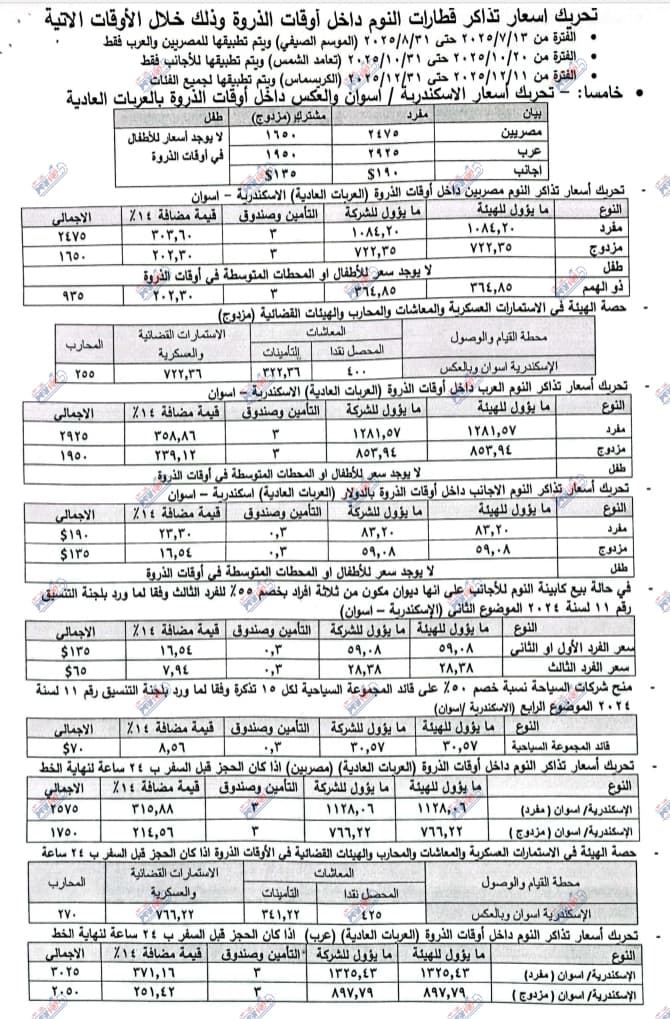 تحريك اسعار تذاكر قطارات النوم داخل أوقات الذروة وذلك خلال الأوقات الاتية
الفترة من ٢٠٢٥/٧/١٣ حتى ٢٠٢٥/٨/٣١ (الموسم الصيفي) ويتم تطبيقها للمصريين والعرب فقط
الفترة من ٢٠٢٥/١٠/٢٠ حتى ٢٠٢٥/١٠/٣١ (تعامد الشمس) ويتم تطبيقها للأجانب فقط
الفترة من ٢٠٢٥/١٢/١١ حتى ٢٠٢٥/١٢/٣١ (الكريسماس) ويتم تطبيقها لجميع الفئات
خامسا: – تحريك أسعار الاسكندرية / اسوان والعكس داخل أوقات الذروة بالعربات العادية
بيان مفرد مشترك (مزدوج) طفل
مصريين ٢٤٧٥ ١٦٥٠ لا يوجد أسعار للأطفال
عرب ٢٩٢٥ ١٩٠٠ في أوقات الذروة
اجانب ١٩٠$ ١٣٥$
- تحريك أسعار تذاكر النوم مصريين داخل أوقات الذروة (العربات العادية) الاسكندرية – اسوان
النوع ما يؤول للهيئة ما يؤول للشركة التأمين وصندوق قيمة مضافة ١٤٪ الاجمالى
مفرد ١٠٨٤,٢٠ ١٠٨٤,٢٠ ٣ ٣٠٣,٦٠ ٢٤٧٥
مزدوج ٧٢٢,٣٥ ٧٢٢,٣٥ ٣ ٢٠٢,٣٠ ١٦٥٠
طفل لا يوجد سعر للأطفال او المحطات المتوسطة في أوقات الذروة
ذو الهمم ٣٦٤,٨٥ ٣٦٤,٨٥ ٣ ٢٠٢,٣٠ ٩٣٥
حصة الهيئة في الاستمارات العسكرية والمعاشات والمحارب والهيئات القضائية (مزدوج)
محطة القيام والوصول المعاشات الاستمارات القضائية والعسكرية المحارب
المحصل نقدا التأمينات
الإسكندرية اسوان وبالعكس ٤٠٠ ٣٢٢,٣٦ ٧٢٢,٣٦ ٢٥٥
- تحريك أسعار تذاكر النوم العرب داخل أوقات الذروة (العربات العادية) الاسكندرية – اسوان
النوع ما يؤول للهيئة ما يؤول للشركة التأمين وصندوق قيمة مضافة ١٤٪ الاجمالى
مفرد ١٢٨١,٥٧ ١٢٨١,٥٧ ٣ ٣٥٨,٨٦ ٢٩٢٥
مزدوج ٨٥٣,٩٤ ٨٥٣,٩٤ ٣ ٢٣٩,١٢ ١٩٠٠
طفل لا يوجد سعر للأطفال او المحطات المتوسطة في أوقات الذروة
- تحريك أسعار تذاكر النوم الاجانب داخل أوقات الذروة بالدولار (العربات العادية) اسكندرية – اسوان
النوع ما يؤول للهيئة ما يؤول للشركة التأمين وصندوق قيمة مضافة ١٤٪ الاجمالى
مفرد ٨٣,٢٠ ٨٣,٢٠ ٠,٣ ٢٣,٣٠ ١٩٠$
مزدوج ٥٩,٠٨ ٥٩,٠٨ ٠,٣ ١٦,٥٤ ١٣٥$
طفل لا يوجد سعر للأطفال او المحطات المتوسطة في أوقات الذروة
- في حالة بيع كابينة النوم للأجانب على انها ديوان مكون من ثلاثة افراد بخصم ٥٥٪ للفرد الثالث وفقا لما ورد بلجنة التنسيق
رقم ١١ لسنة ٢٠٢٤ الموضوع الثاني (الإسكندرية – اسوان)
النوع ما يؤول للهيئة ما يؤول للشركة التأمين وصندوق قيمة مضافة ١٤٪ الاجمالى
سعر الفرد الأول او الثاني ٥٩,٠٨ ٥٩,٠٨ ٠,٣ ١٦,٥٤ ١٣٥$
سعر الفرد الثالث ٢٨,٣٨ ٢٨,٣٨ ٠,٣ ٧,٩٤ ٦٥$
- منح شركات السياحة نسبة خصم ٥٠٪ على قائد المجموعة السياحية لكل ١٥ تذكرة وفقا لما ورد بلجنة التنسيق رقم ١١ لسنة
٢٠٢٤ الموضوع الرابع (الاسكندرية /اسوان)
النوع ما يؤول للهيئة ما يؤول للشركة التأمين وصندوق قيمة مضافة ١٤٪ الاجمالى
قائد المجموعة السياحية ٣٠,٥٧ ٣٠,٥٧ ٠,٣ ٨,٥٦ ٧٠$
- تحريك أسعار تذاكر النوم داخل أوقات الذروة (العربات العادية) (مصريين) اذا كان الحجز قبل السفر ب ٢٤ ساعة لنهاية الخط
النوع ما يؤول للهيئة ما يؤول للشركة التأمين وصندوق قيمة مضافة ١٤٪ الاجمالى
الإسكندرية/ اسوان ( مفرد) ١١٢٨,٠٦ ١١٢٨,٠٦ ٣ ٣١٥,٨٨ ٢٥٧٥
الإسكندرية/ اسوان ( مزدوج ) ٧٦٦,٢٢ ٧٦٦,٢٢ ٣ ٢١٤,٥٦ ١٧٥٠
- حصة الهيئة في الاستمارات العسكرية والمعاشات والمحارب والهيئات القضائية في الأوقات الذروة اذا كان الحجز قبل السفر ب ٢٤ ساعة
محطة القيام والوصول المعاشات الاستمارات القضائية والعسكرية المحارب
المحصل نقدا التأمينات
الإسكندرية اسوان وبالعكس ٤٢٥ ٣٤١,٢٢ ٧٦٦,٢٢ ٢٧٠
- تحريك أسعار تذاكر النوم داخل أوقات الذروة (العربات العادية) (عرب) اذا كان الحجز قبل السفر ب ٢٤ ساعة لنهاية الخط
النوع ما يؤول للهيئة ما يؤول للشركة التأمين وصندوق قيمة مضافة ١٤٪ الاجمالى
الإسكندرية/ اسوان ( مفرد) ١٣٢٥,٤٣ ١٣٢٥,٤٣ ٣ ٣٧١,١٦ ٣٠٢٥
الإسكندرية/ اسوان ( مزدوج ) ٨٩٧,٧٩ ٨٩٧,٧٩ ٣ ٢٥١,٤٢ ٢٠٥٠